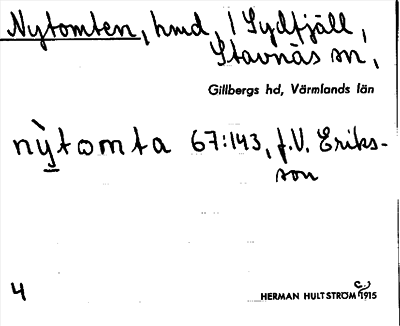 Nytomten, hmd, i Sydfjäll,
Stavnäs sn,
Gillbergs hd, Värmlands län
nỳtomta 67:143, f.V. Eriks-
son
4
HERMAN HULTSTRÖM c. 1915